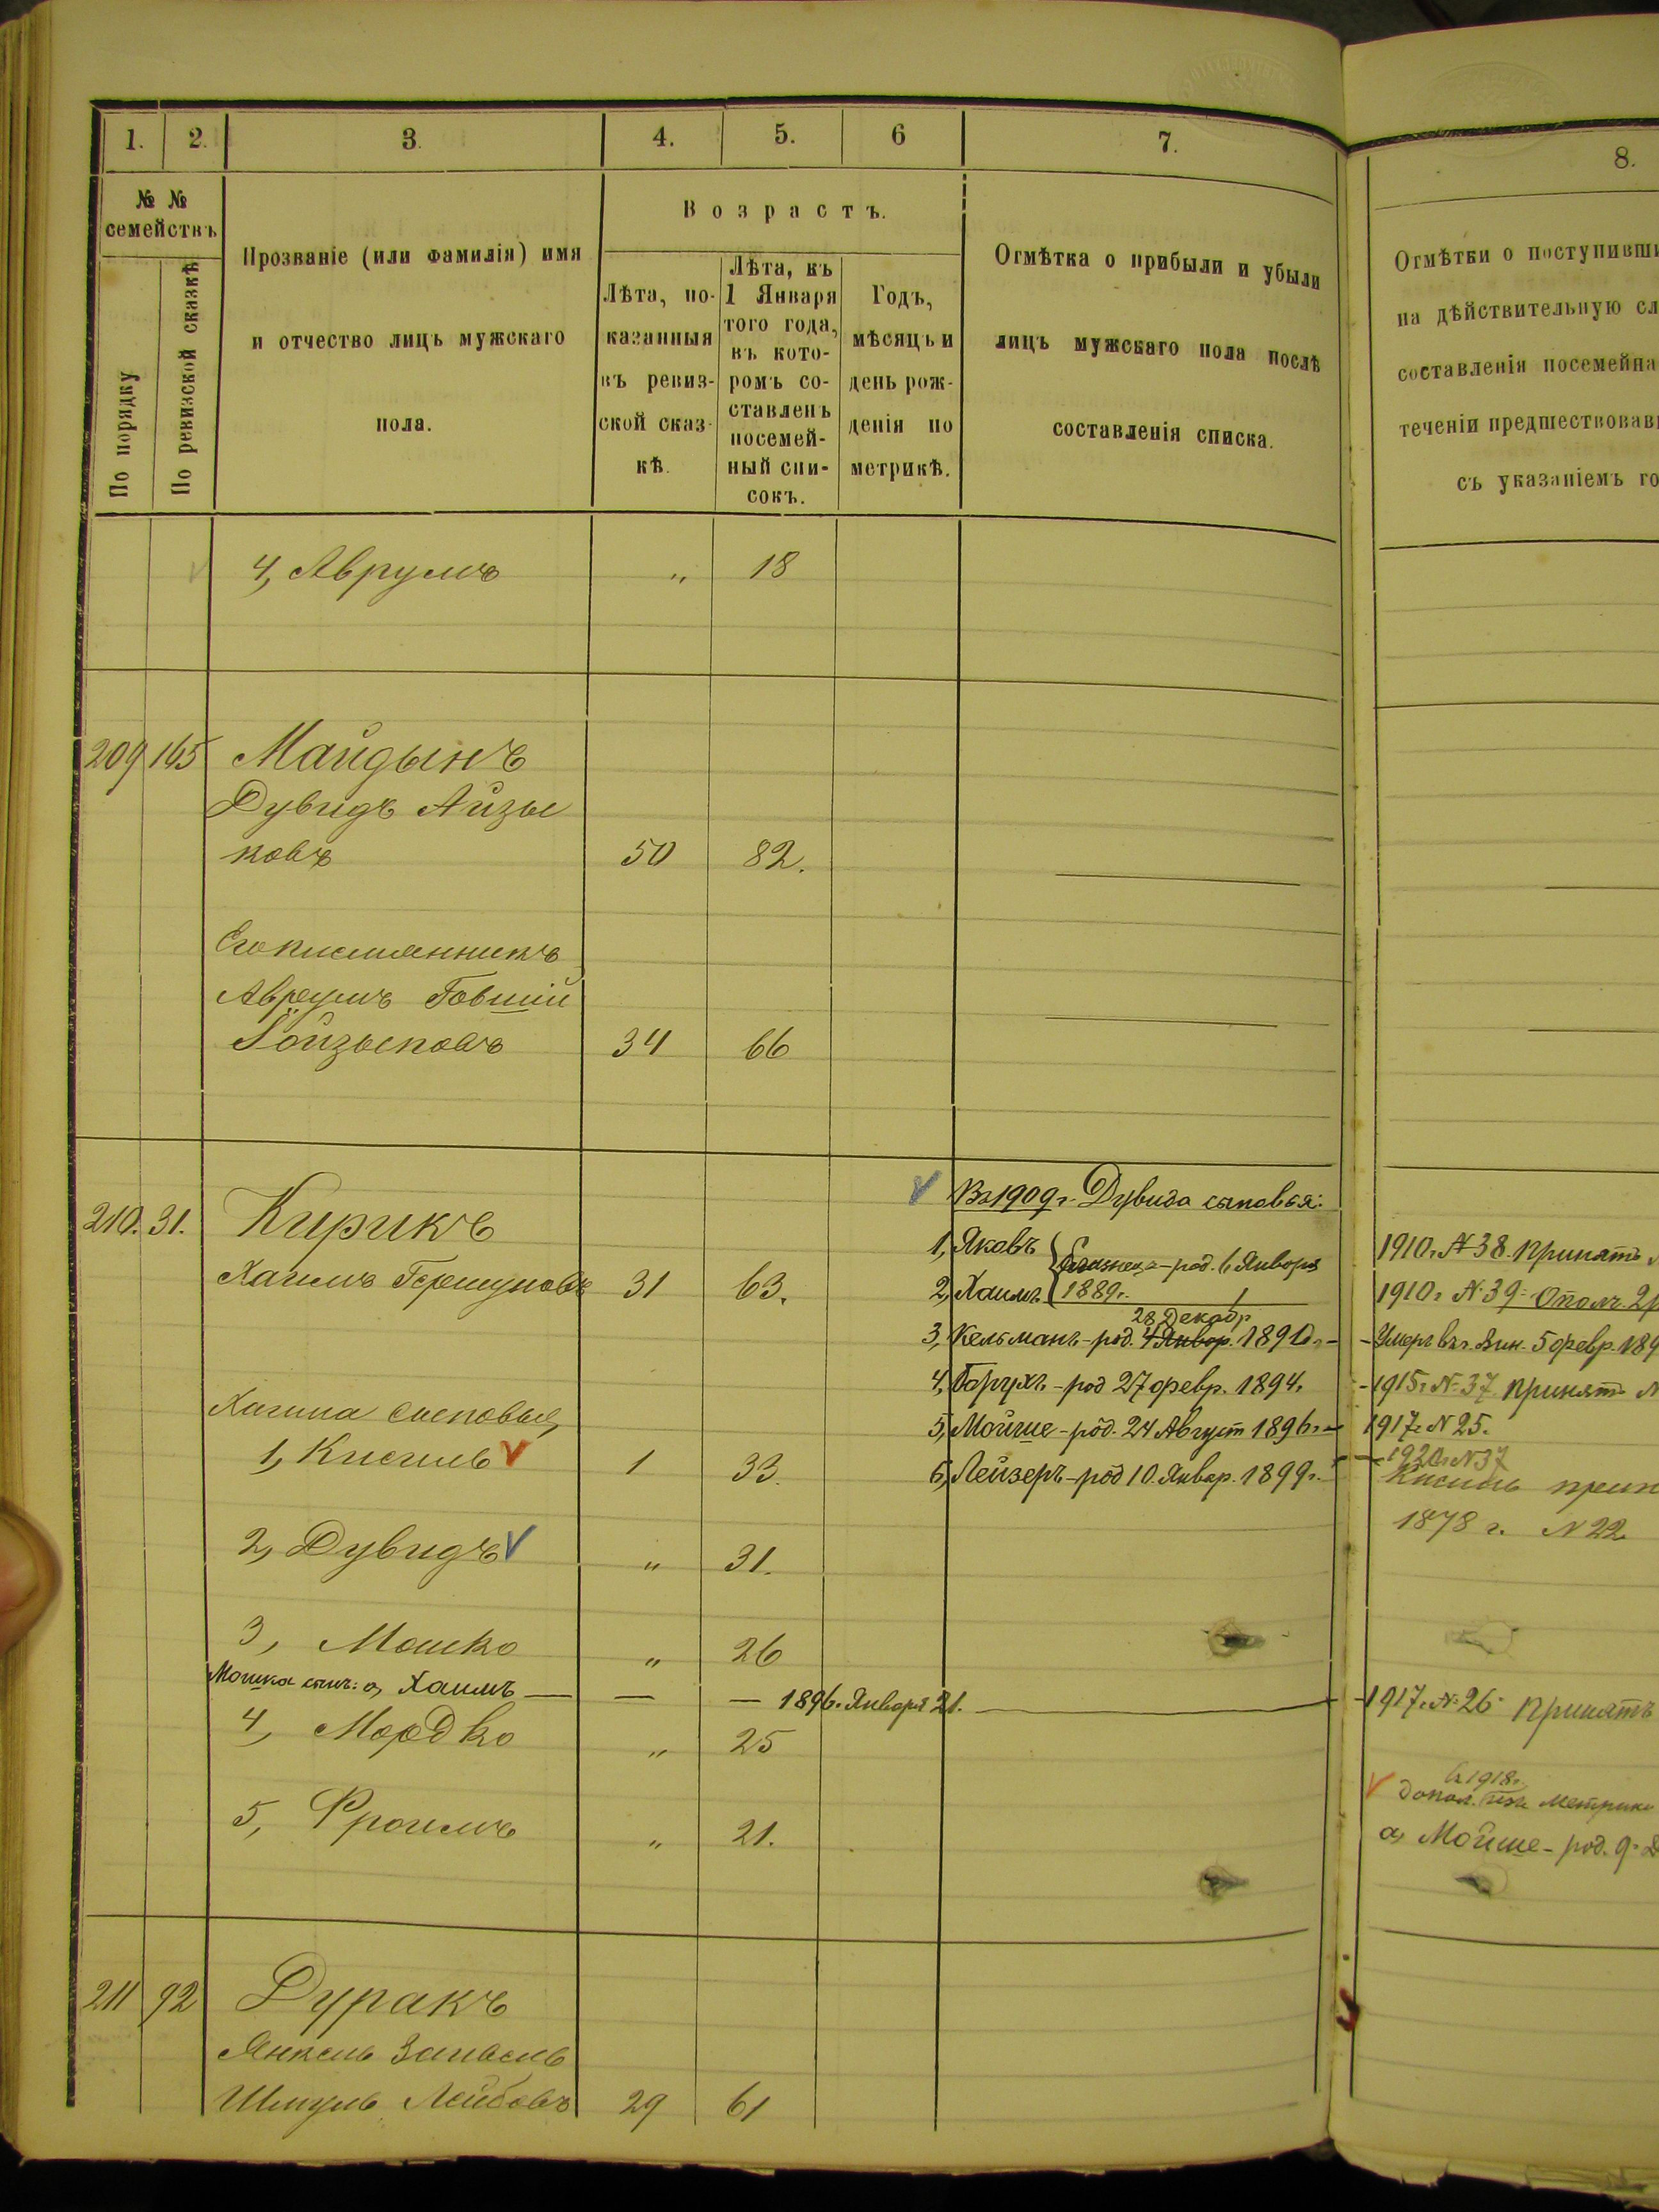 1. 2. 3. 4. 5. 6 7. 8.
№ № семействъ
По порядку
По ревизской сказкѣ
Прозваніе (или фамилія) имя
и отчество лицъ мужскаго
пола.
Возрастъ.
Лѣта, по-
казанныя
въ ревиз-
ской сказ-
кѣ.
Лѣта, къ
1 Января
того года,
въ кото-
ромъ со-
ставленъ
посемей-
ный спи-
сокъ.
Годъ,
мѣсяцъ и
день рож-
денія по
метрикѣ.
Отмѣтка о прибыли и убыли
лицъ мужскаго пола послѣ
составленія списка.
Отмѣтки о поступивши
на дѣйствительную сл
составленія посемейна
теченіи предшествовав
съ указаніемъ го
4, Аврумъ " 18
209 165 Майдынъ
Дувидъ Айзы
ковъ 50 82.
Его племянникъ
Авреумъ Говшій
Іойзыповъ 34 66
210. 31. Кирикъ
Хаимъ Гершуновъ 31 63.
Хаима сыновья,
1, Кисиль 1 33.
2, Дувидъ " 31.
3, Мошко " 26
Мошка сынъ: а, Хаимъ — — — 1896 г. Января 21.
4, Мордко " 25
5, Фроимъ " 21.
Въ 1909 г. Дувида сыновья:
1, Яковъ
2, Хаимъ
близнецы - род. 6 Января
1889 г.
28 Декабр
3, Кельманъ - род. 4 Январ. 1891 г. -
4, Борухъ - род 27 февр. 1894 г.
5, Мойше - род. 24 Август 1896 г. -
6, Лейзеръ - род 10 Январ. 1899 г.
1910 г. № 38. Принятъ
1910 г. № 39 - Ополч. 2 р
- Умеръ въ г. Вин. 5 февр. 189
- 1915 г. № 37 Принятъ
1917 г. № 25.
1920 г. № 37
Кисиль прин
1878 г. № 22
1917 г. № 26 Принятъ
в 1918 г.
допол. изъ метрики
а, Мойше - род. 9
211 92 Дуракъ
Янкель Занвель
Шмуль Лейбовъ 29 61